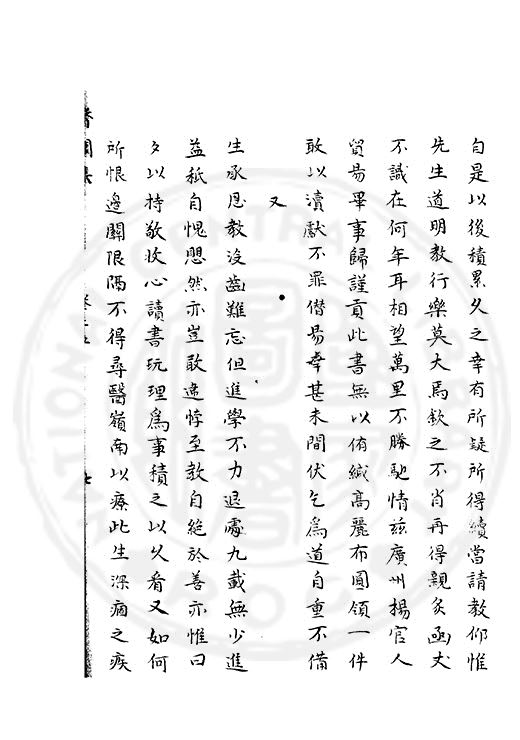 自是以後積累久之幸有所疑所得續當請教仰惟
先生道明教行樂莫大焉欽之不肖再得親炙函丈
不識在何年耳相望萬里不勝馳情玆廣州楊官人
貿易畢事歸謹貢此書無以侑緘高麗布圓領一件
敢以瀆獻不罪僣易幸甚未間伏乞爲道自重不備
又
生承見教沒齒難忘但進學不力退處九載無少進
益秪自愧恧然亦豈敢違悖至教自絶於善亦惟日
夕以持敬收心讀書玩理爲事積之以久看又如何
所恨邊關限隔不得尋醫嶺南以療此生深痼之疾
醫閭集